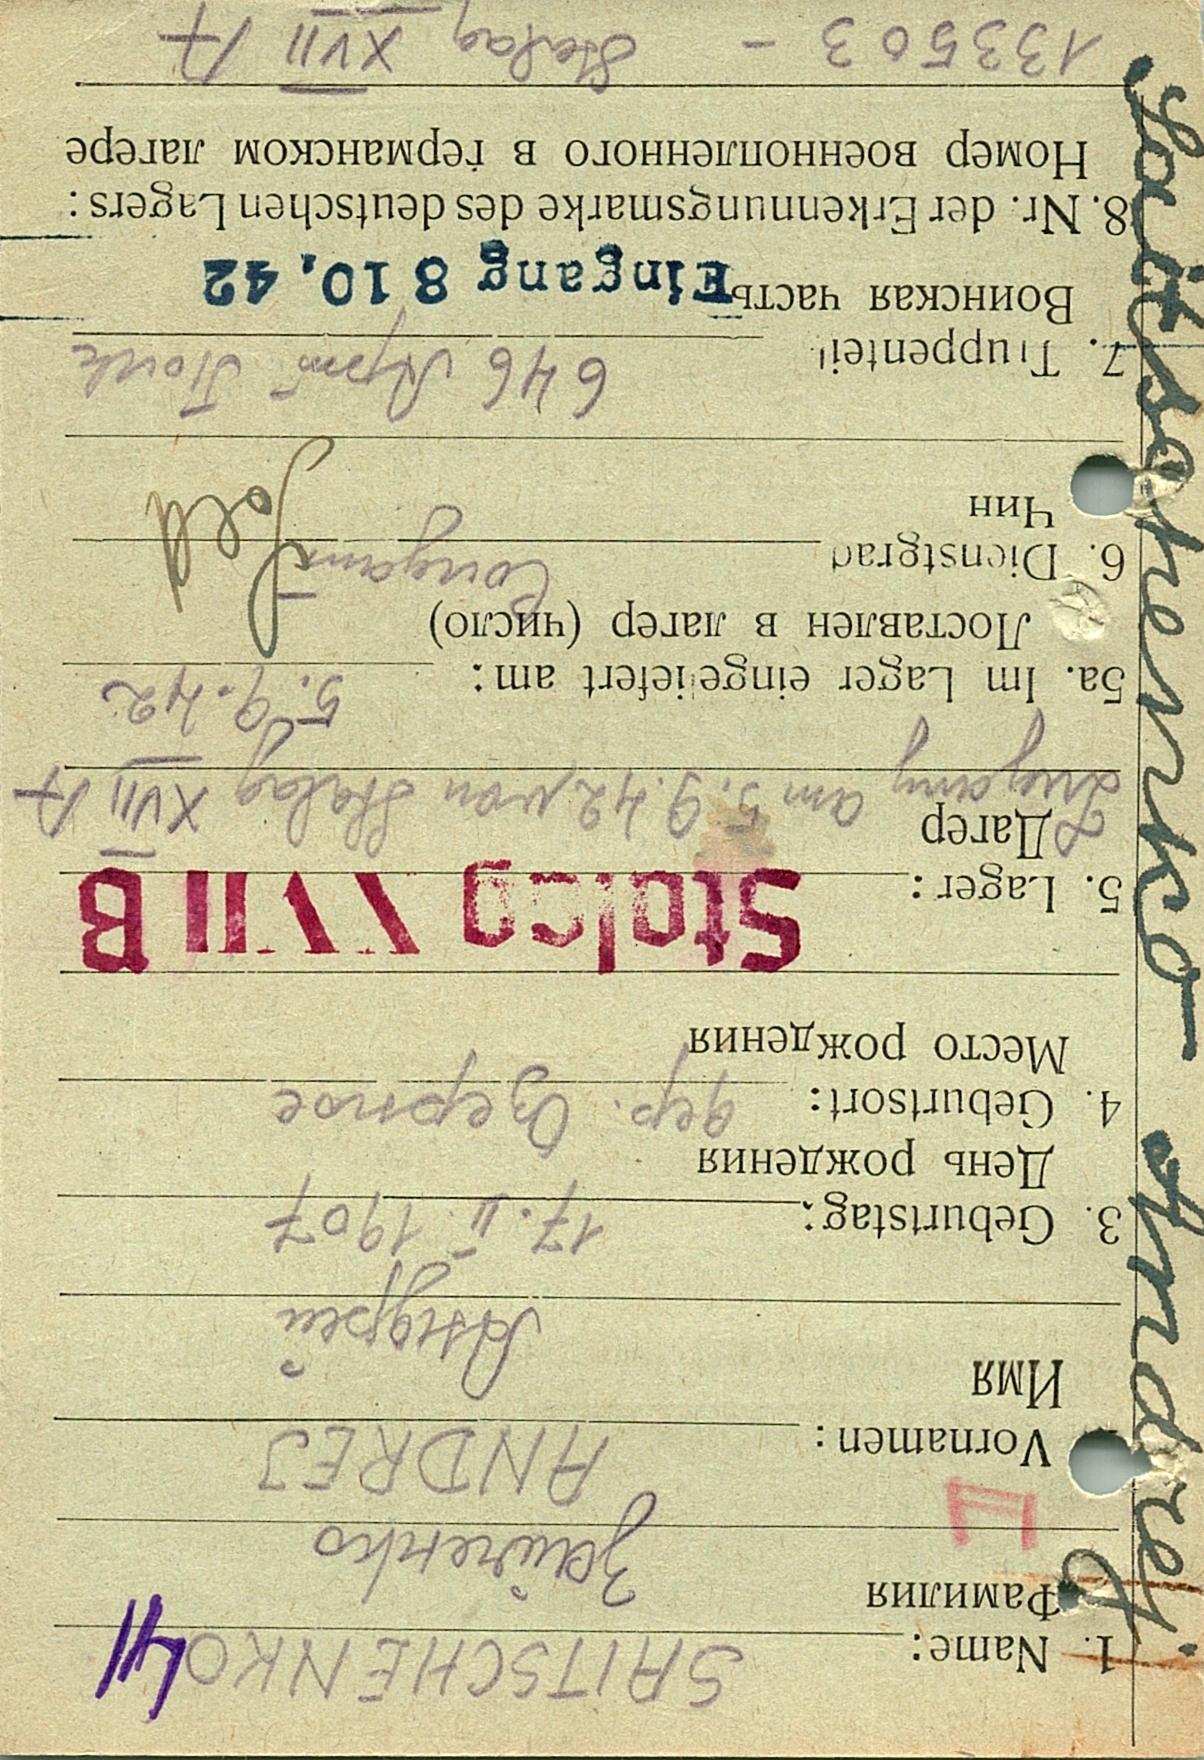 Saitschenko Andrej
1. Name: SAITSCHENKO
Фамилия Зайченко
Vornamen: ANDREJ
Имя Андрей
3. Geburtstag: 17. II. 1907
День рождения
4. Geburtsort: дер. Озерное
Место рождения
Stalag XVII B
5. Lager:
Лагер
Zugang am 5.9.42 von Stalag XVII A
5a. Im Lager eingeliefert am: 5.9.42
Доставлен в лагер (число)
6. Dienstgrad Sold
Чин
7. Truppenteil 646
Воинская часть Eingang 8 10. 42
8. Nr. der Erkennungsmarke des deutschen Lagers:
Номер военнопленного в германском лагере
133503 - Stalag XVII A